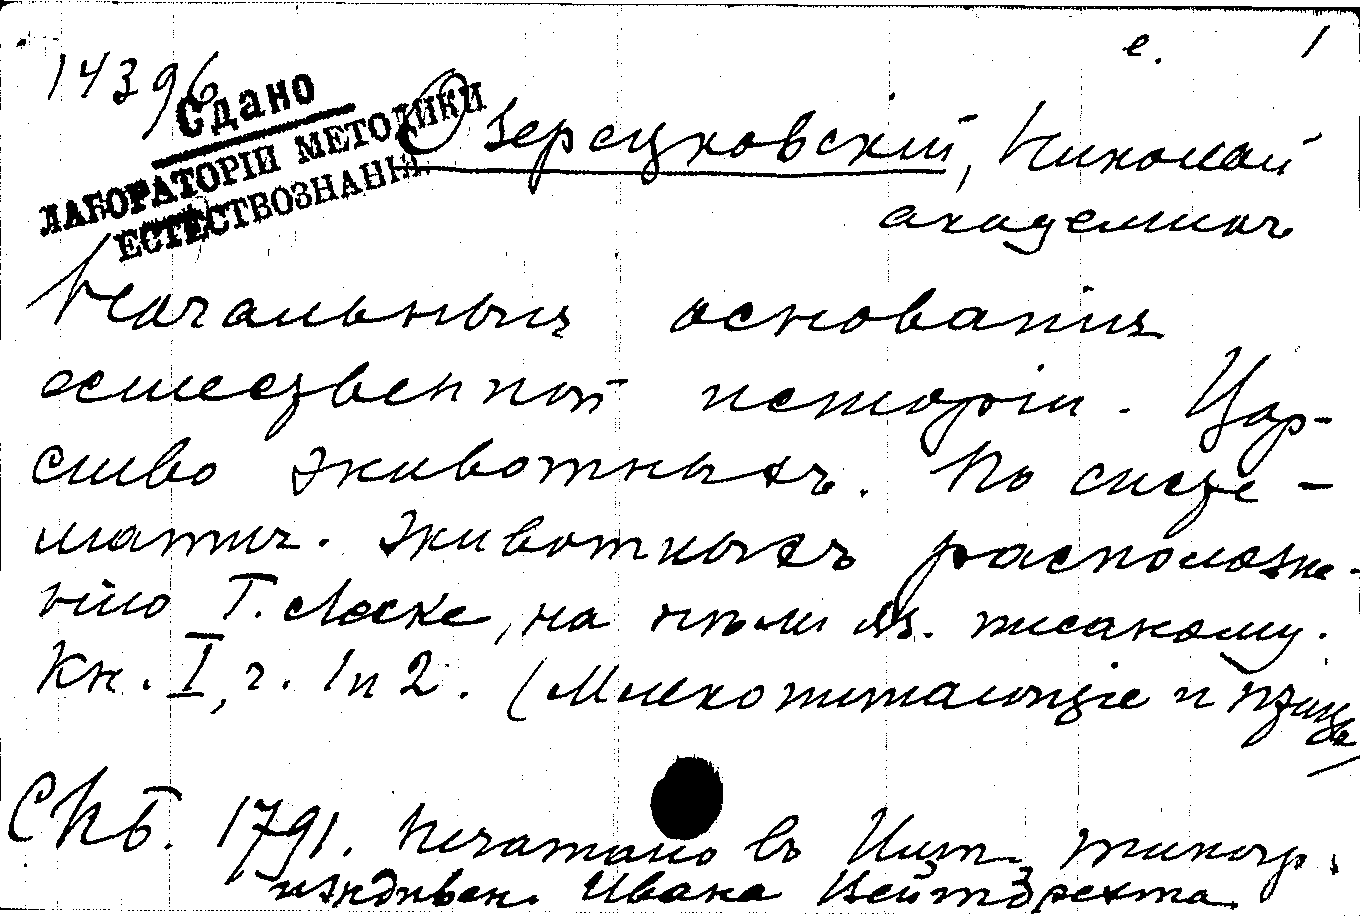 е. 1
14396
Сдано
ЛАБОРАТОРІИ МЕТОДИКИ
ЕСТЕСТВОЗНАНІЯ.
Озерецковскій, Николай
академикъ
Начальныя основанія
естественной исторіи. Цар-
ство животныхъ. По систе-
матич. животныхъ расположе-
нію Г. Леске, на нѣм. яз. писаному.
Кн. I, ч. 1 и 2. (Млекопитающіе и птицы)
СПБ. 1791. Печатано въ Имп. типогр.
иждивен. Ивана Вейтбрехта.